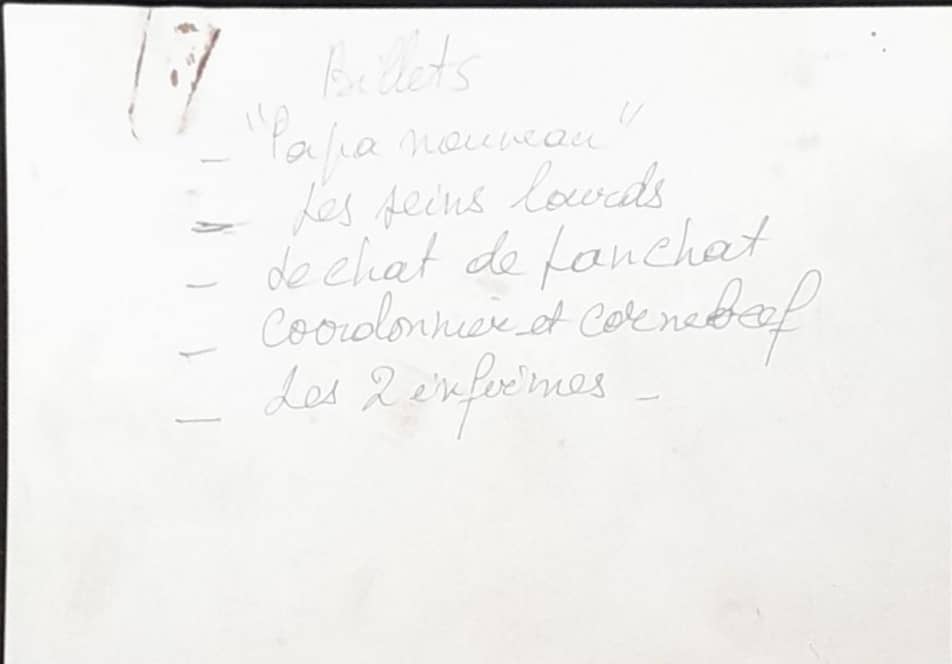 Billets
— "Papa nouveau"
— Les seins lourds
— Le chat de Fanchat
— Coordonnier et Cornebeef
— Les 2 infirmes —